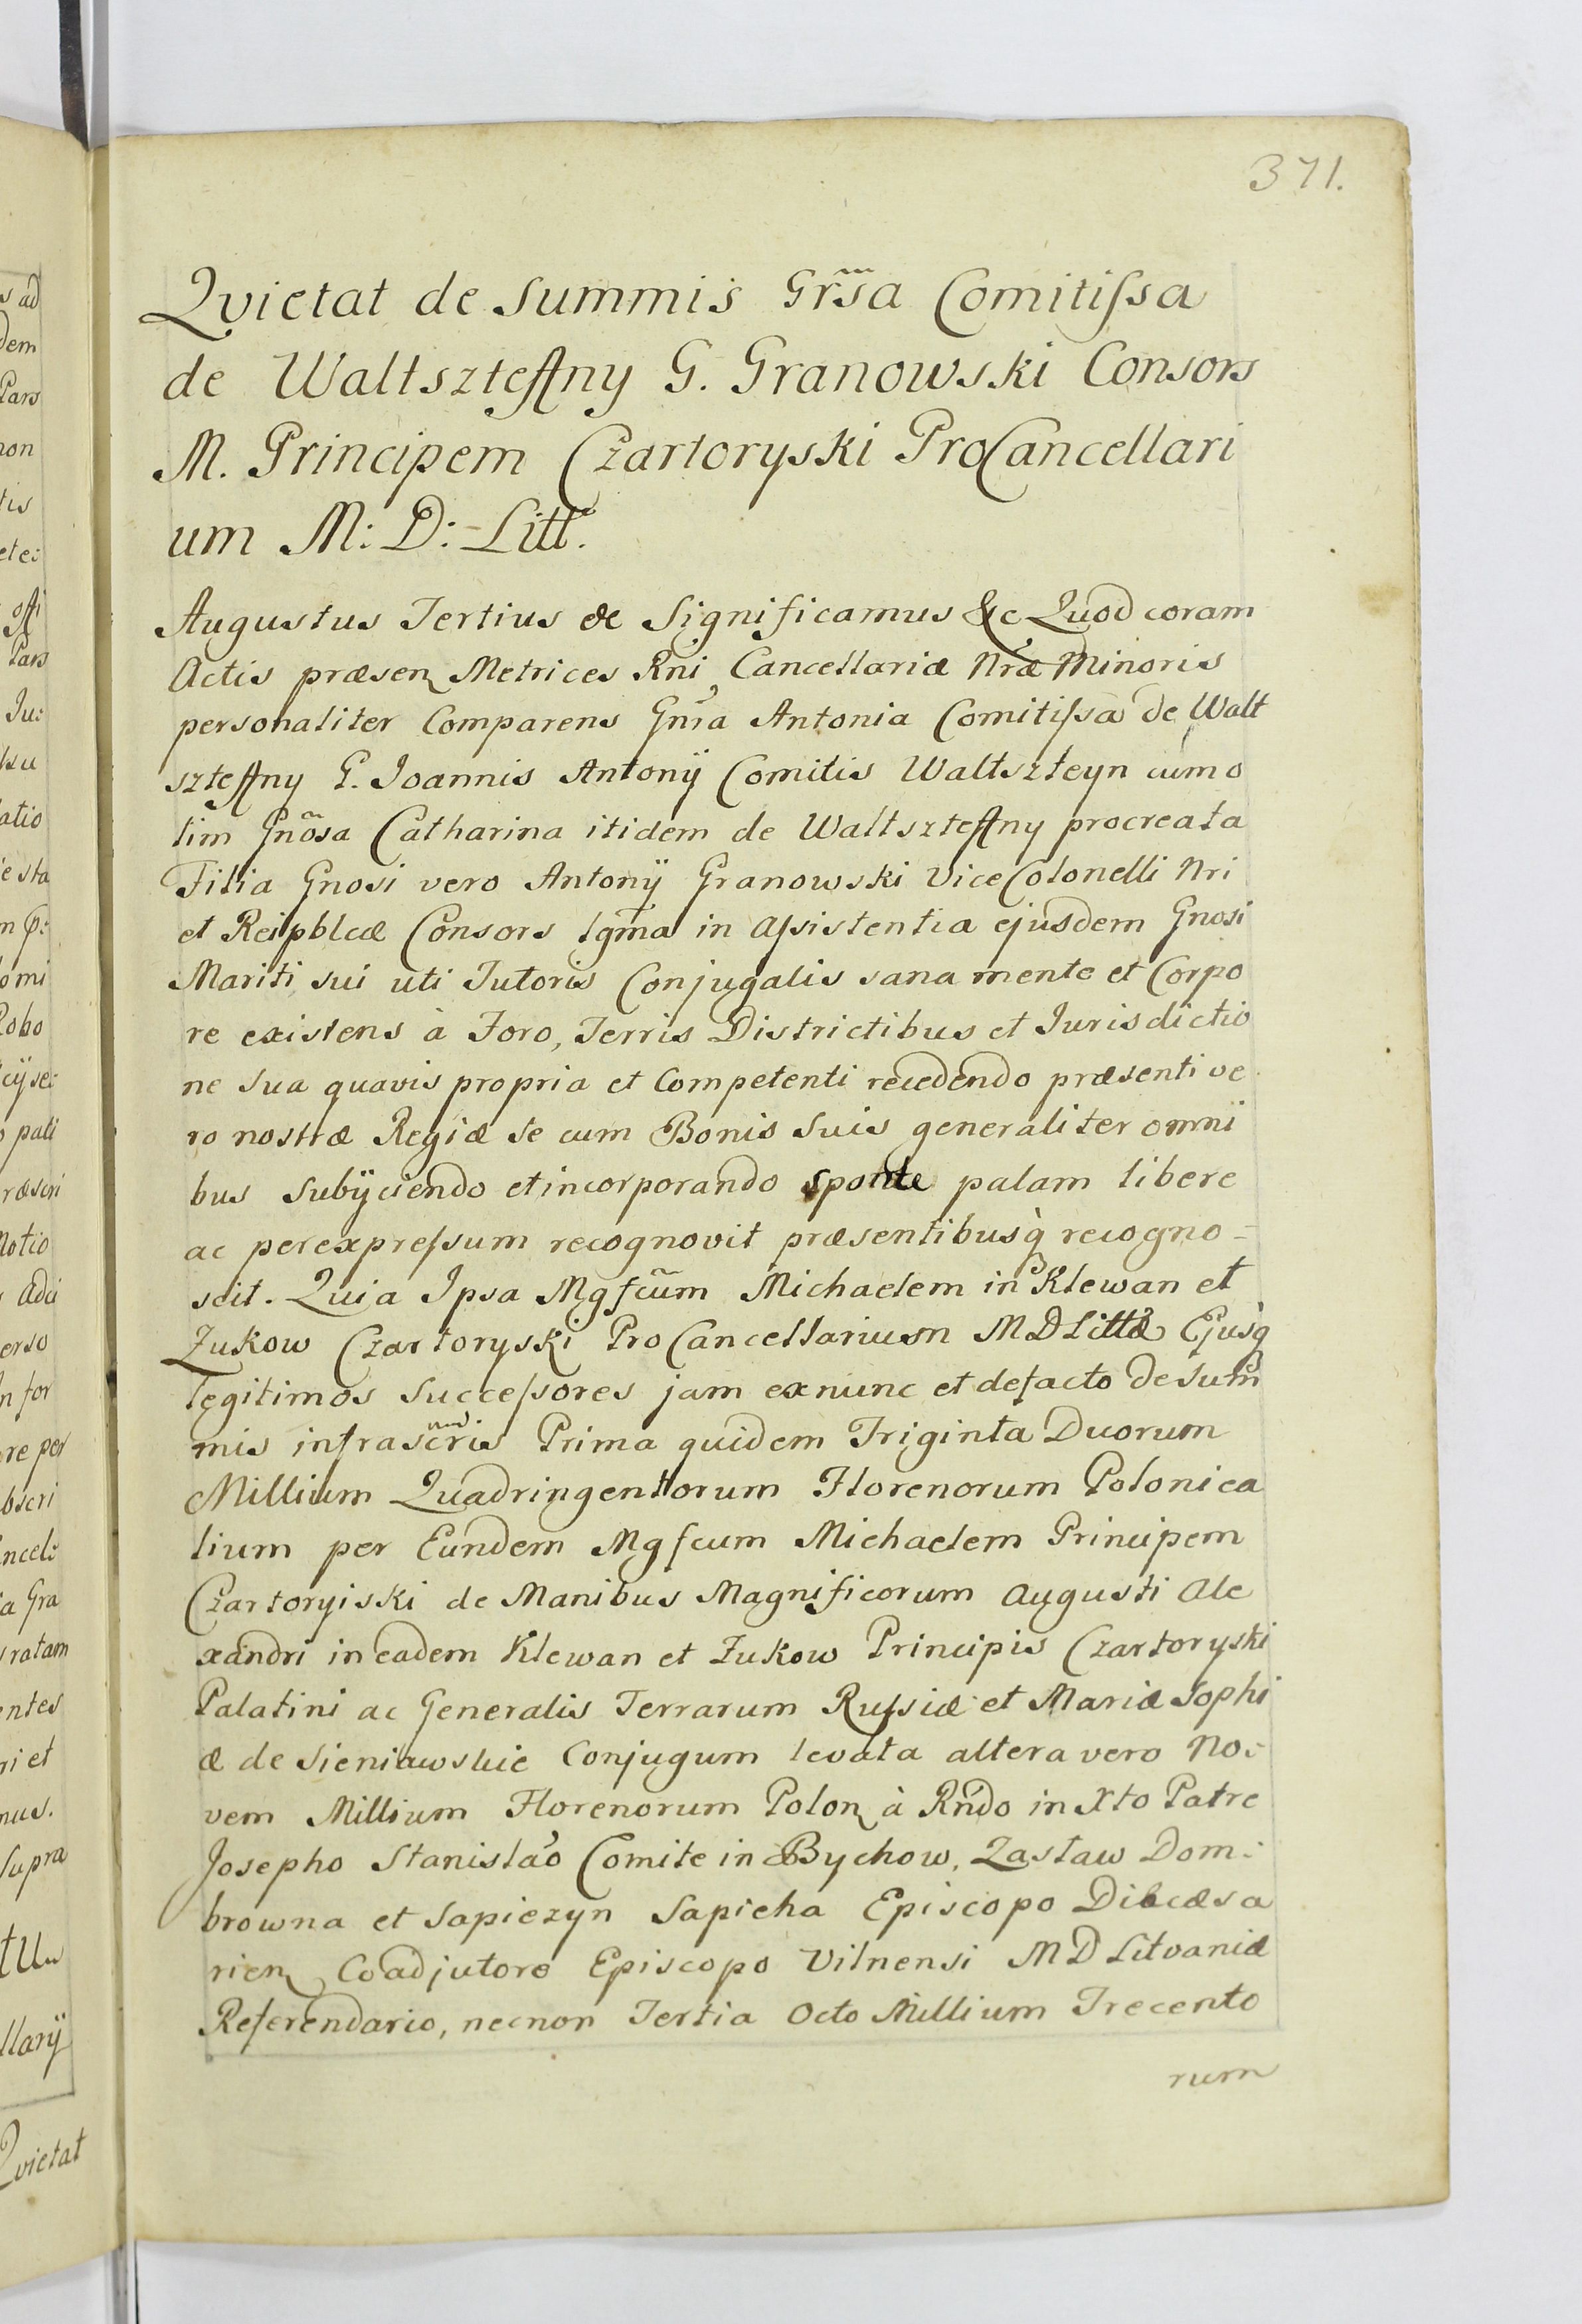 371.
Qvietat de Summis Grsa Comitissa
de Waltszteyny G. Granowski Consors
M. Principem Czartoryski ProCancellari
um M: D: Litt.
Augustus Tertius &c Significamus &c Quod coram
Actis præsen Metrices Rni Cancellariæ Nræ Minoris
personaliter Comparens Gnsa Antonia Comitissa de Walt
szteyny G. Joannis Antonÿ Comitis Waltszteyn cum o
lim Gnosa Catharina itidem de Waltszteyny procreata
Filia Gnosi vero Antonÿ Granowski ViceColonelli Nri
et Reipblcæ Consors lgma in Assistentia ejusdem Gnosi
Mariti sui uti Tutoris Conjugalis sana mente et Corpo
re existens à Foro, Terris Districtibus et Jurisdictio
ne Sua quavis propria et Competenti recedendo præsenti ve
ro nostræ Regiæ Se cum Bonis Suis generaliter omni
bus Subÿciendo et incorporando sponte palam libere
ac perexpressum recognovit præsentibusq recogno-
scit. Quia Ipsa Mgfcum Michaelem in Klewan et
Zukow Czartoryski ProCancellarium MDLittæ Ejusq
legitimos Successores jam exnunc et defacto de Sum
mis infrascris Prima quidem Triginta Duorum
Millium Quadringentorum Florenorum Polonica
lium per Eundem Mgfcum Michaelem Principem
Czartoryiski de Manibus Magnificorum Augusti Ale
xandri in eadem Klewan et Zukow Principis Czartoryski
Palatini ac Generalis Terrarum Russiæ et Mariæ Sophi
æ de Sieniawskie Conjugum levata altera vero No:
vem Millium Florenorum Polon à Rndo in Xto Patre
Josepho Stanislao Comite in Bychow, Zasław Dom:
browna et Sapiezyn Sapieha Episcopo Diocæsa
rien Coadjutore Episcopo Vilnensi MD Litvaniæ
Referendario, necnon Tertia Octo Millium Trecento
rum